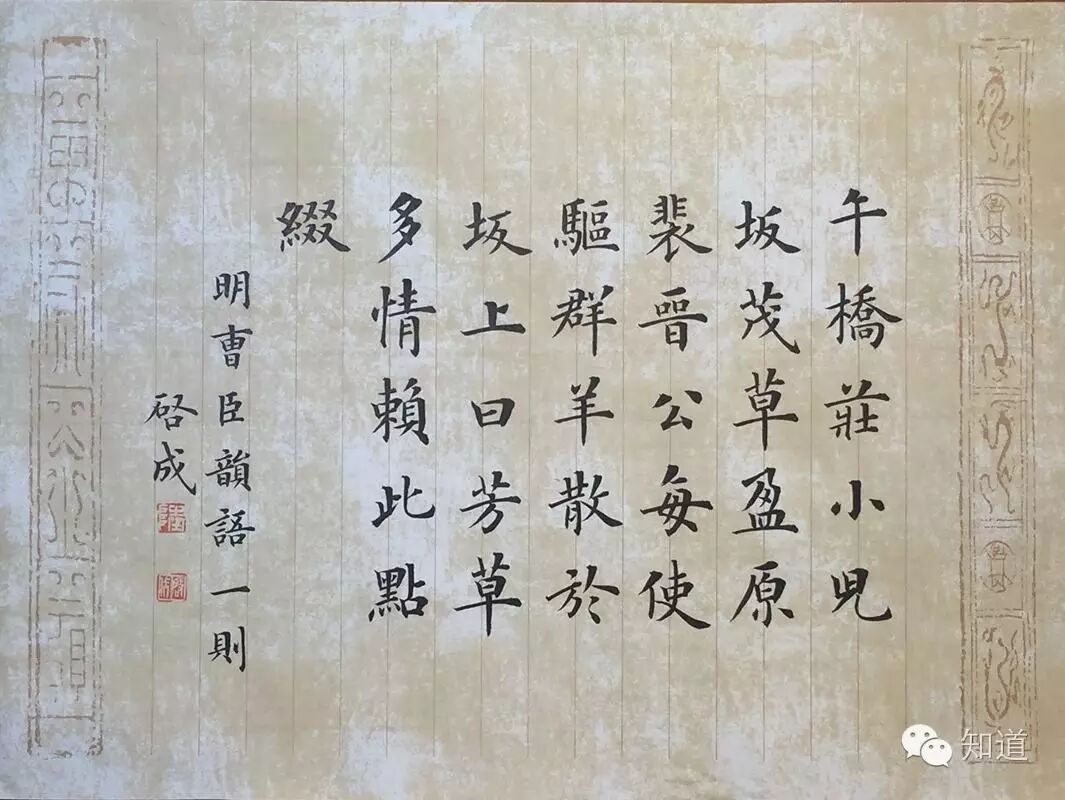 午橋莊小兒
坂茂草盈原
裴晉公每使
驅群羊散於
坂上曰芳草
多情賴此點
綴
明曹臣韻語一則
啓成
知道